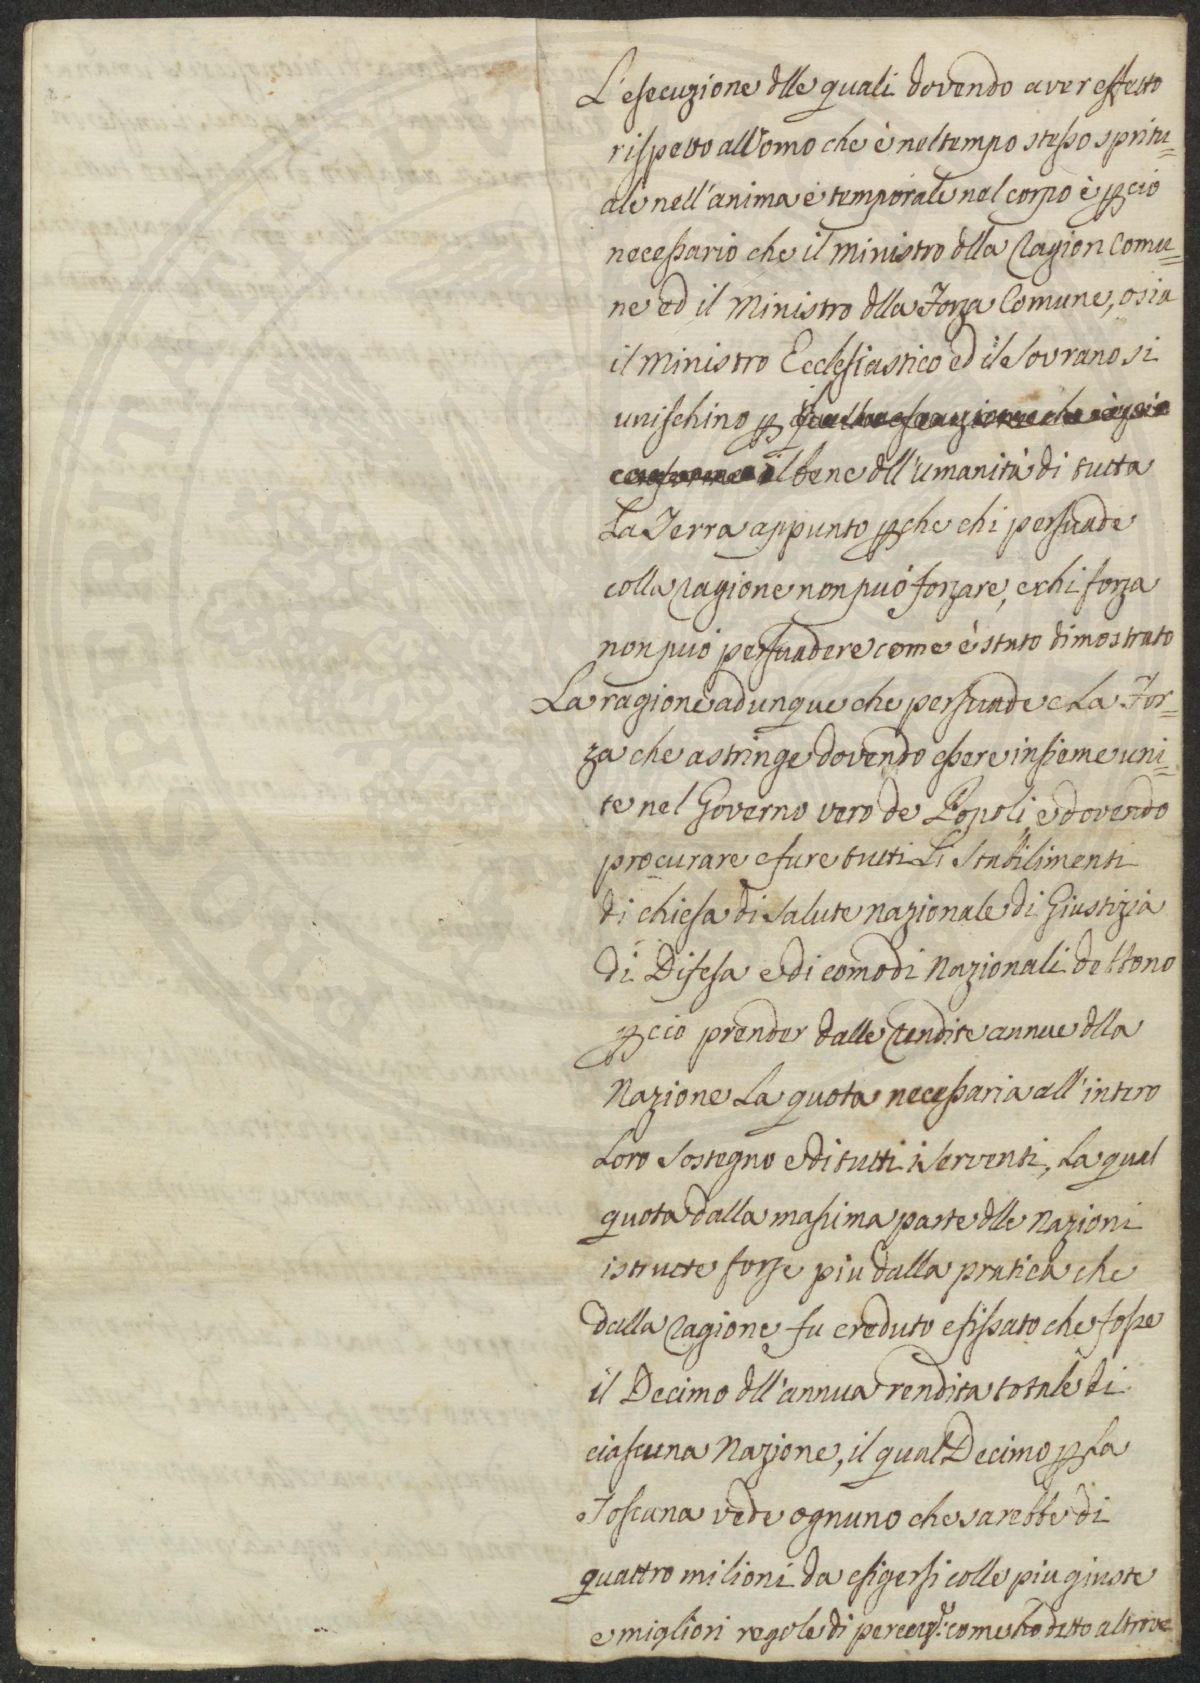 L'esecuzione dlle quali dovendo aver effetto
rispetto all'omo che è nel tempo stesso spritu=
ale nell'anima e temporale nel corpo è pciò
necessario che il Ministro dlla Ragion Comu=
ne ed il Ministro dlla Forza Comune, o sia
il Ministro Ecclesiastico ed il Sovrano si
unischino p
il bene dll'umanità di tutta
La Terra appunto pche chi persuade
colla ragione non può forzare, e chi forza
non può persuadere come è stato dimostrato
La ragione adunque che persuade e La For=
za che astringe dovendo essere insieme uni=
te nel Governo vero de Popoli, e dovendo
procurare e fare tutti Li Stabilimenti
di chiesa di salute nazionale di Giustizia
di Difesa e di comodi Nazionali debbono
pciò prender dalle Rendite annue dlla
Nazione La quota necessaria all'intero
Loro sostegno e di tutti i serventi, La qual
quota dalla massima parte dlle Nazioni
istrutte forse piu dalla pratica che
dalla ragione fu creduto e fissato che fosse
il Decimo dll'annua rendita totale di
ciascuna Nazione, il qual Decimo p La
Toscana vede ognuno che sarebbe di
quattro milioni da esigersi colle piu giuste
e migliori regole di come ho detto altrove